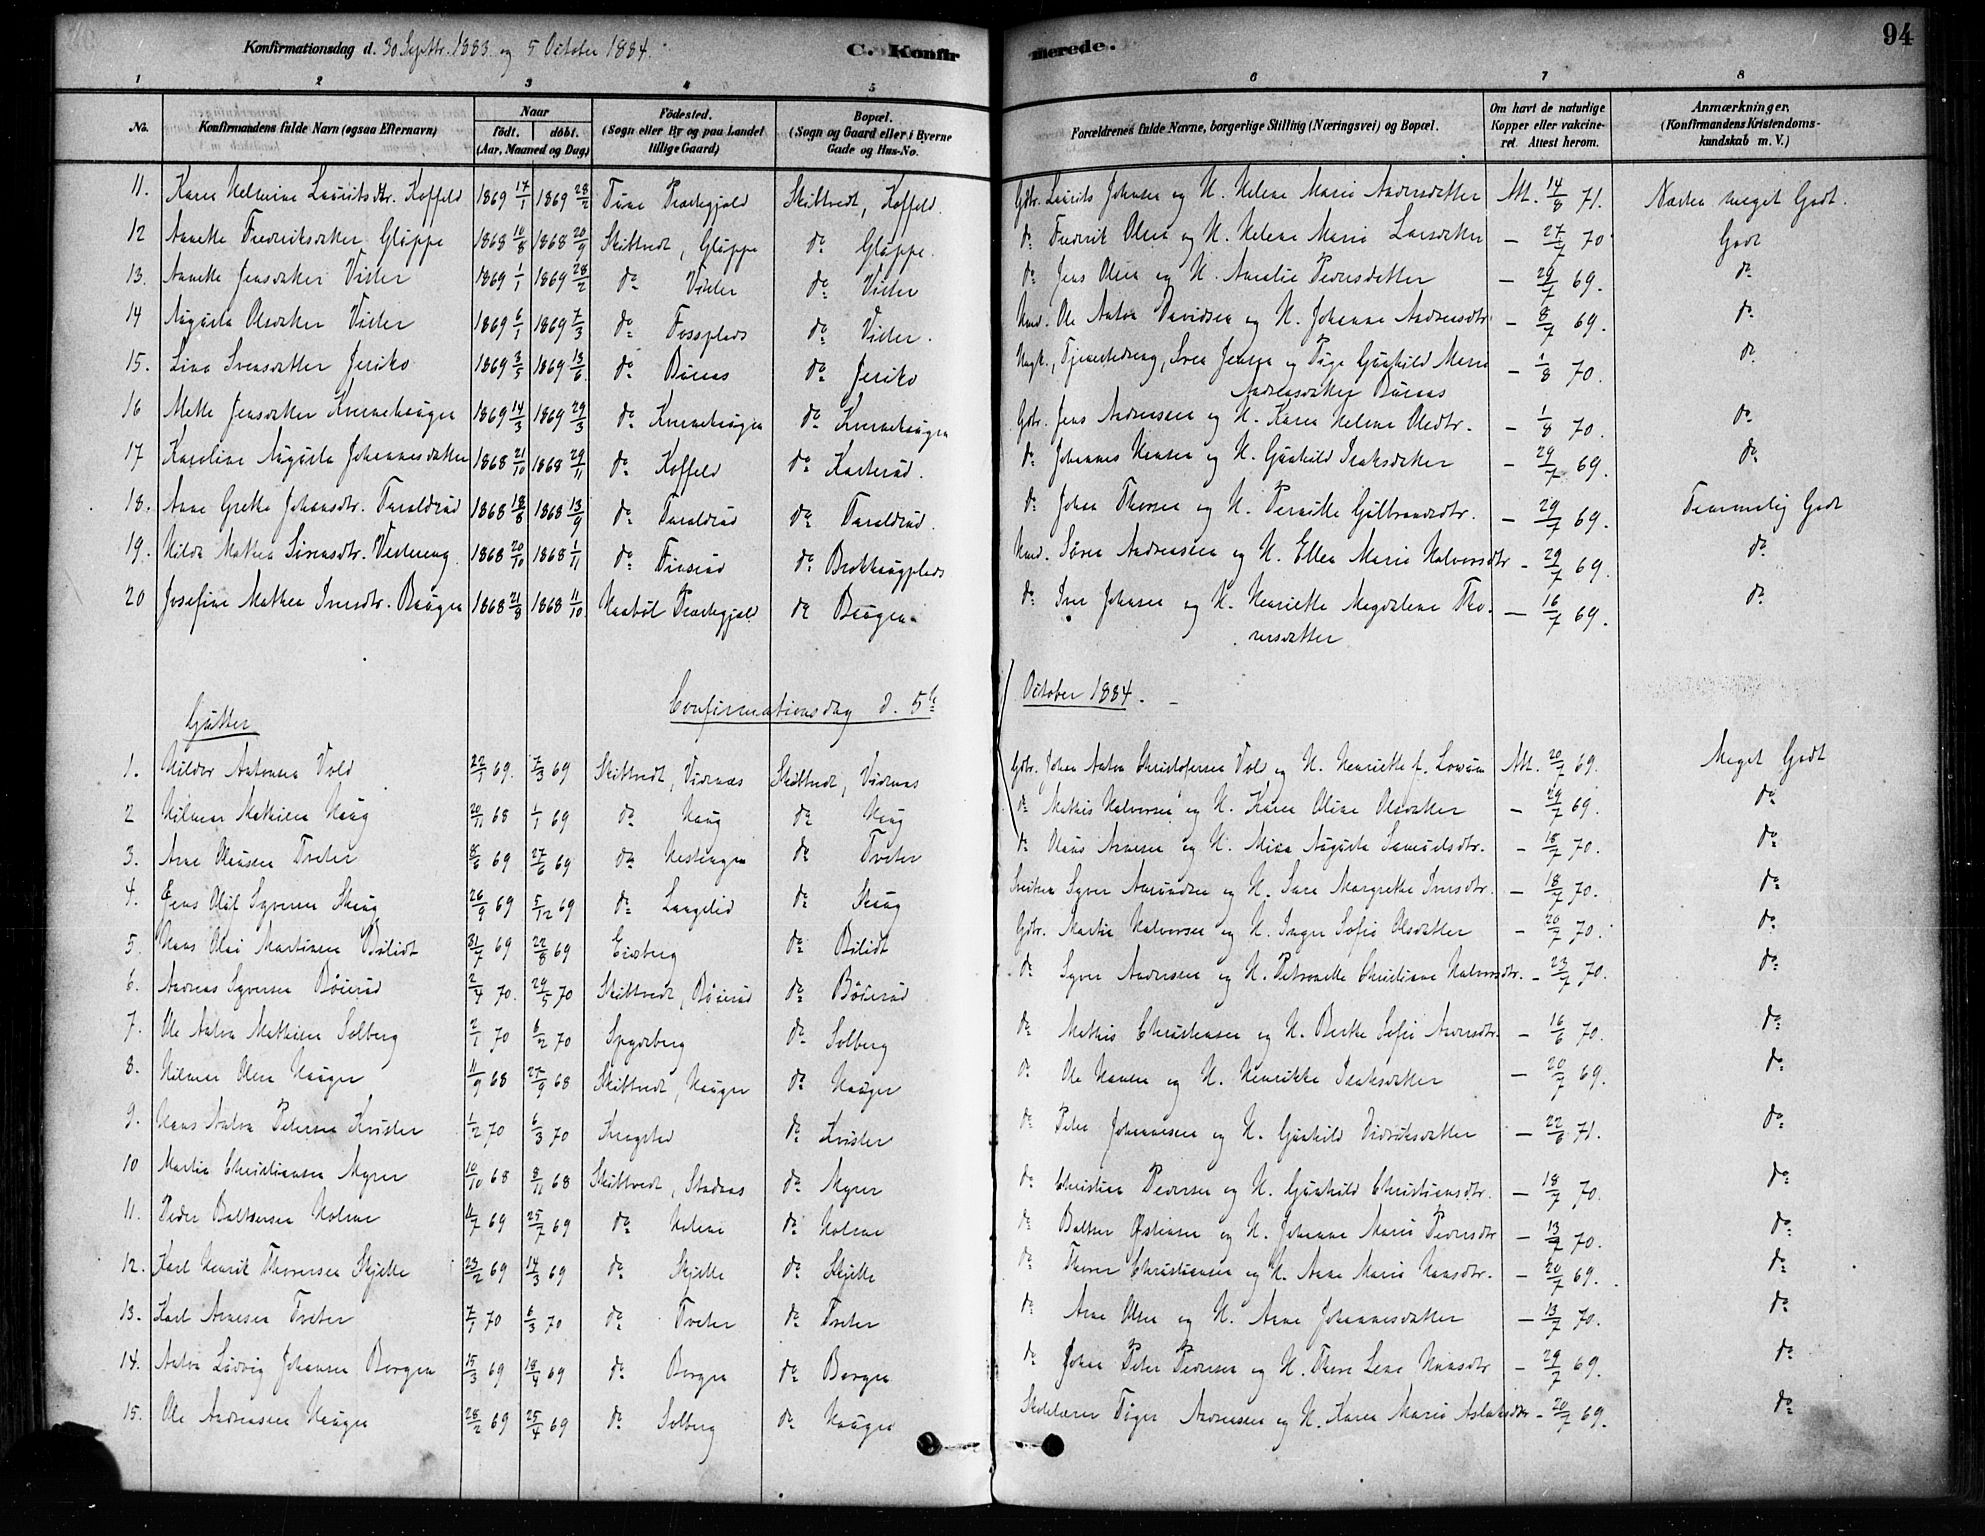 Konfirmationsdag d. 30 Septbr. 1883 og 5 October 1884. C. Konfirmerede. 94
1 2 3 4 5 6 7 8
No. Konfirmandens fulde Navn (ogsaa Efternavn) Naar født. døbt. (Aar, Maaned og Dag) Fødested. (Sogn eller By og paa Landet tillige Gaard) Bopæl. (Sogn og Gaard eller i Byerne Gade og Hus-No. Forældrenes fulde Navne, borgerlige Stilling (Næringsvei) og Bopæl. Om havt de naturlige Kopper eller vakcineret. Attest herom. Anmærkninger. (Konfirmandens Kristendomskundskab m. V.)
11. Karen Lauritsdtr. Koffeld 1869 17/1 1869 28/2 Tune Præstegjeld Skiptvedt, Koffeld. Gdbr. Laurits Johnsen og H. Helene Marie Andersdatter Att. 14/8 71. Næsten meget Godt.
12 Annette Fredriksdatter Gløppe 1868 10/8 1868 20/9 Skiptvedt, Gløppe do Gløppe. do Fredrik Olsen og H. Helene Marie Larsdatter — 27/7 70 Godt
13. Annette Jensdatter Vister 1869 1/1 1869 28/2 do Vister do Vister do Jens Olsen og H. Amalie Pedersdatter — 29/7 69. do
14 Augusta Olsdatter Vister 1869 6/1 1869 7/3 do Fossplads do Vister. Hmd. Ole Anton Davidsen og H. Johanne Andersdtr. — 8/7 69. do
15. Lina Svensdatter Jeriko 1869 3/5 1869 13/6 do Buraas do Jeriko Ungk., Tjenestedreng, Sven Jensen og Pige Gunhild Marie — 1/8 70. do
Andreasdatter Buraas
16 Mette Jensdatter Kvernehaugen 1869 14/3 1869 29/3 do Kvernehaugen do Kvernehaugen Gdbr. Jens Andersen og H. Karen Helene Olsdtr. — 1/8 70. do
17 Karoline Augusta Johannesdatter 1868 21/10 1868 29/11 do Koffeld do Karterud. do Johannes Hansen og H. Gunhild Isaksdatter — 29/7 69. do
18. Anne Grethe Johansdtr. Taraldrud 1868 18/8 1868 13/9 do Taraldrud do Taraldrud. do Johan Thorsen og H. Pernille Gulbrandsdtr. — 29/7 69. Temmelig Godt
19. Hilda Mathea Sørensdtr. Vestereng 1868 20/10 1868 1/11 do Finsrud do Brekhusplads Hmd. Søren Andreassen og H. Ellen Marie Halvorsdtr — 29/7 69. do
20 Josefine Mathea Iversdtr. Haugen 1868 21/8 1868 11/10. Haabøl Præstegjeld do Haugen. do Iver Johnsen og H. Henriette Magdalene Tho- — 16/7 69. do
rersdatter
Gutter Confirmationsdag d. 5te October 1884.
1. Hildor Antonsen Vold 22/1 69. 7/3 69 Skiptvedt, Vidnæs Skiptvedt, Vidnæs Gdbr. Johan Anton Christofersen Vol og H. Henriette f. Att. 20/7 69. Meget Godt
2 Hilmar Mathisen Haug 20/11 68 1/1 69 do Haug do Haug do Mathis Halvorsen og H. Karen Oline Olsdatter — 29/7 69. do
3. Arne Olausen Tveter 8/6 69 27/6 69 do Hestengen do Tveter do Olaus Arnesen og H. Mina Augusta Samuelsdtr. — 18/7 70. do
4. Jens Olaf Syversen Skaug 26/9 69 5/12 69 do Langelid do Skaug Syver Amundsen og H. Sara Margrethe Iversdtr. — 18/7 70. do
5. Hans Olai Martinsen Bilidt 31/7 69 22/8 69 Eidsberg do Bilidt Gdbr. Martin Halvorsen og H. Inger Sofie Olsdatter — 20/7 70. do
6. Andreas Syversen Bøierud 2/4 70. 29/5 70 Skiptvedt, Bøierud do Bøierud do Syver Andersen og H. Petronelle Christiane Halvorsdtr. — 23/7 70. do
7. Ole Anton Mathisen Solberg 2/1 70 6/2 70 Spydeberg do Solberg do Mathis Christensen og H. Berthe Sofie Andersdtr. — 16/6 70. do
8. Hilmar Olsen Hauger 11/9 68 27/9 68 Skiptvedt, Hauger do Hauger do Ole Hansen og H. Henrikke Isaksdatter — 20/7 69. do
9. Hans Anton Petersen Kvister 1/2 70 6/3 70 Kragstad do Kvister do Peter Johannesen og H. Gunhild Didriksdatter — 22/6 71. do
10 Martin Christiansen Myrer 10/10 68 8/11 68 Skiptvedt, Stadaas do Myrer do Christian Pedersen og H. Gunhild Christiansdtr. — 18/7 70. do
11. Peder Baltsersen Holene 11/7 69 25/7 69 do Holene do Holene do Baltser Østensen og H. Johanne Marie Pedersdtr — 13/7 70. do
12. Karl Henrik Thoresen Skjelle 23/2 69 14/3 69 do Skjelle do Skjelle do Thorer Christiansen og H. Anne Marie Hansdtr. — 20/7 69. do
13. Karl Arnesen Tveter 7/1 70 6/3 70 do Tveter do Tveter do Arne Olsen og H. Anne Johannesdatter — 13/7 70. do
14. Anton Ludvig Johansen Borgen 15/3 69 18/4 69 do Borgen do Borgen do Johan Peter Pedersen og H. Thore Lene Hansdtr — 29/7 69. do
15. Ole Andreassen Hauger 28/2 69 25/4 69 do Solberg do Hauger Skolelærer Andersen og H. Karen Marie Aslaksdtr — 20/7 69. do